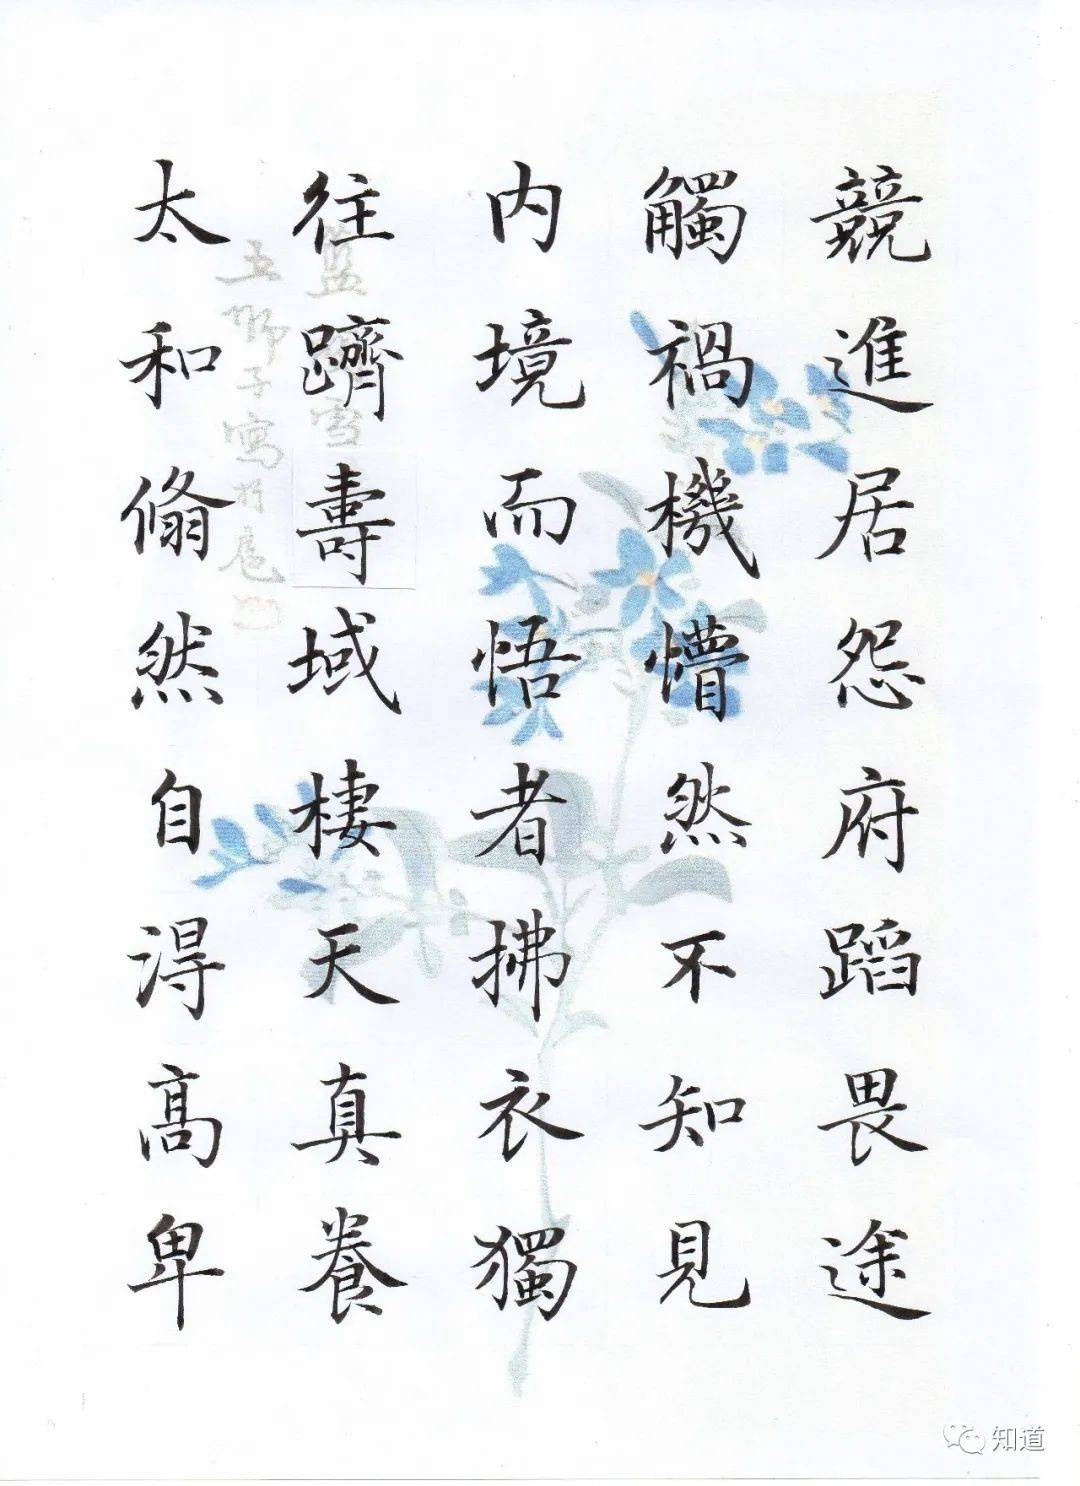 競進居怨府蹈畏途
觸禍機懵然不知見
内境而悟者拂衣獨
往躋壽域棲天真養
太和翛然自淂髙卑
知道